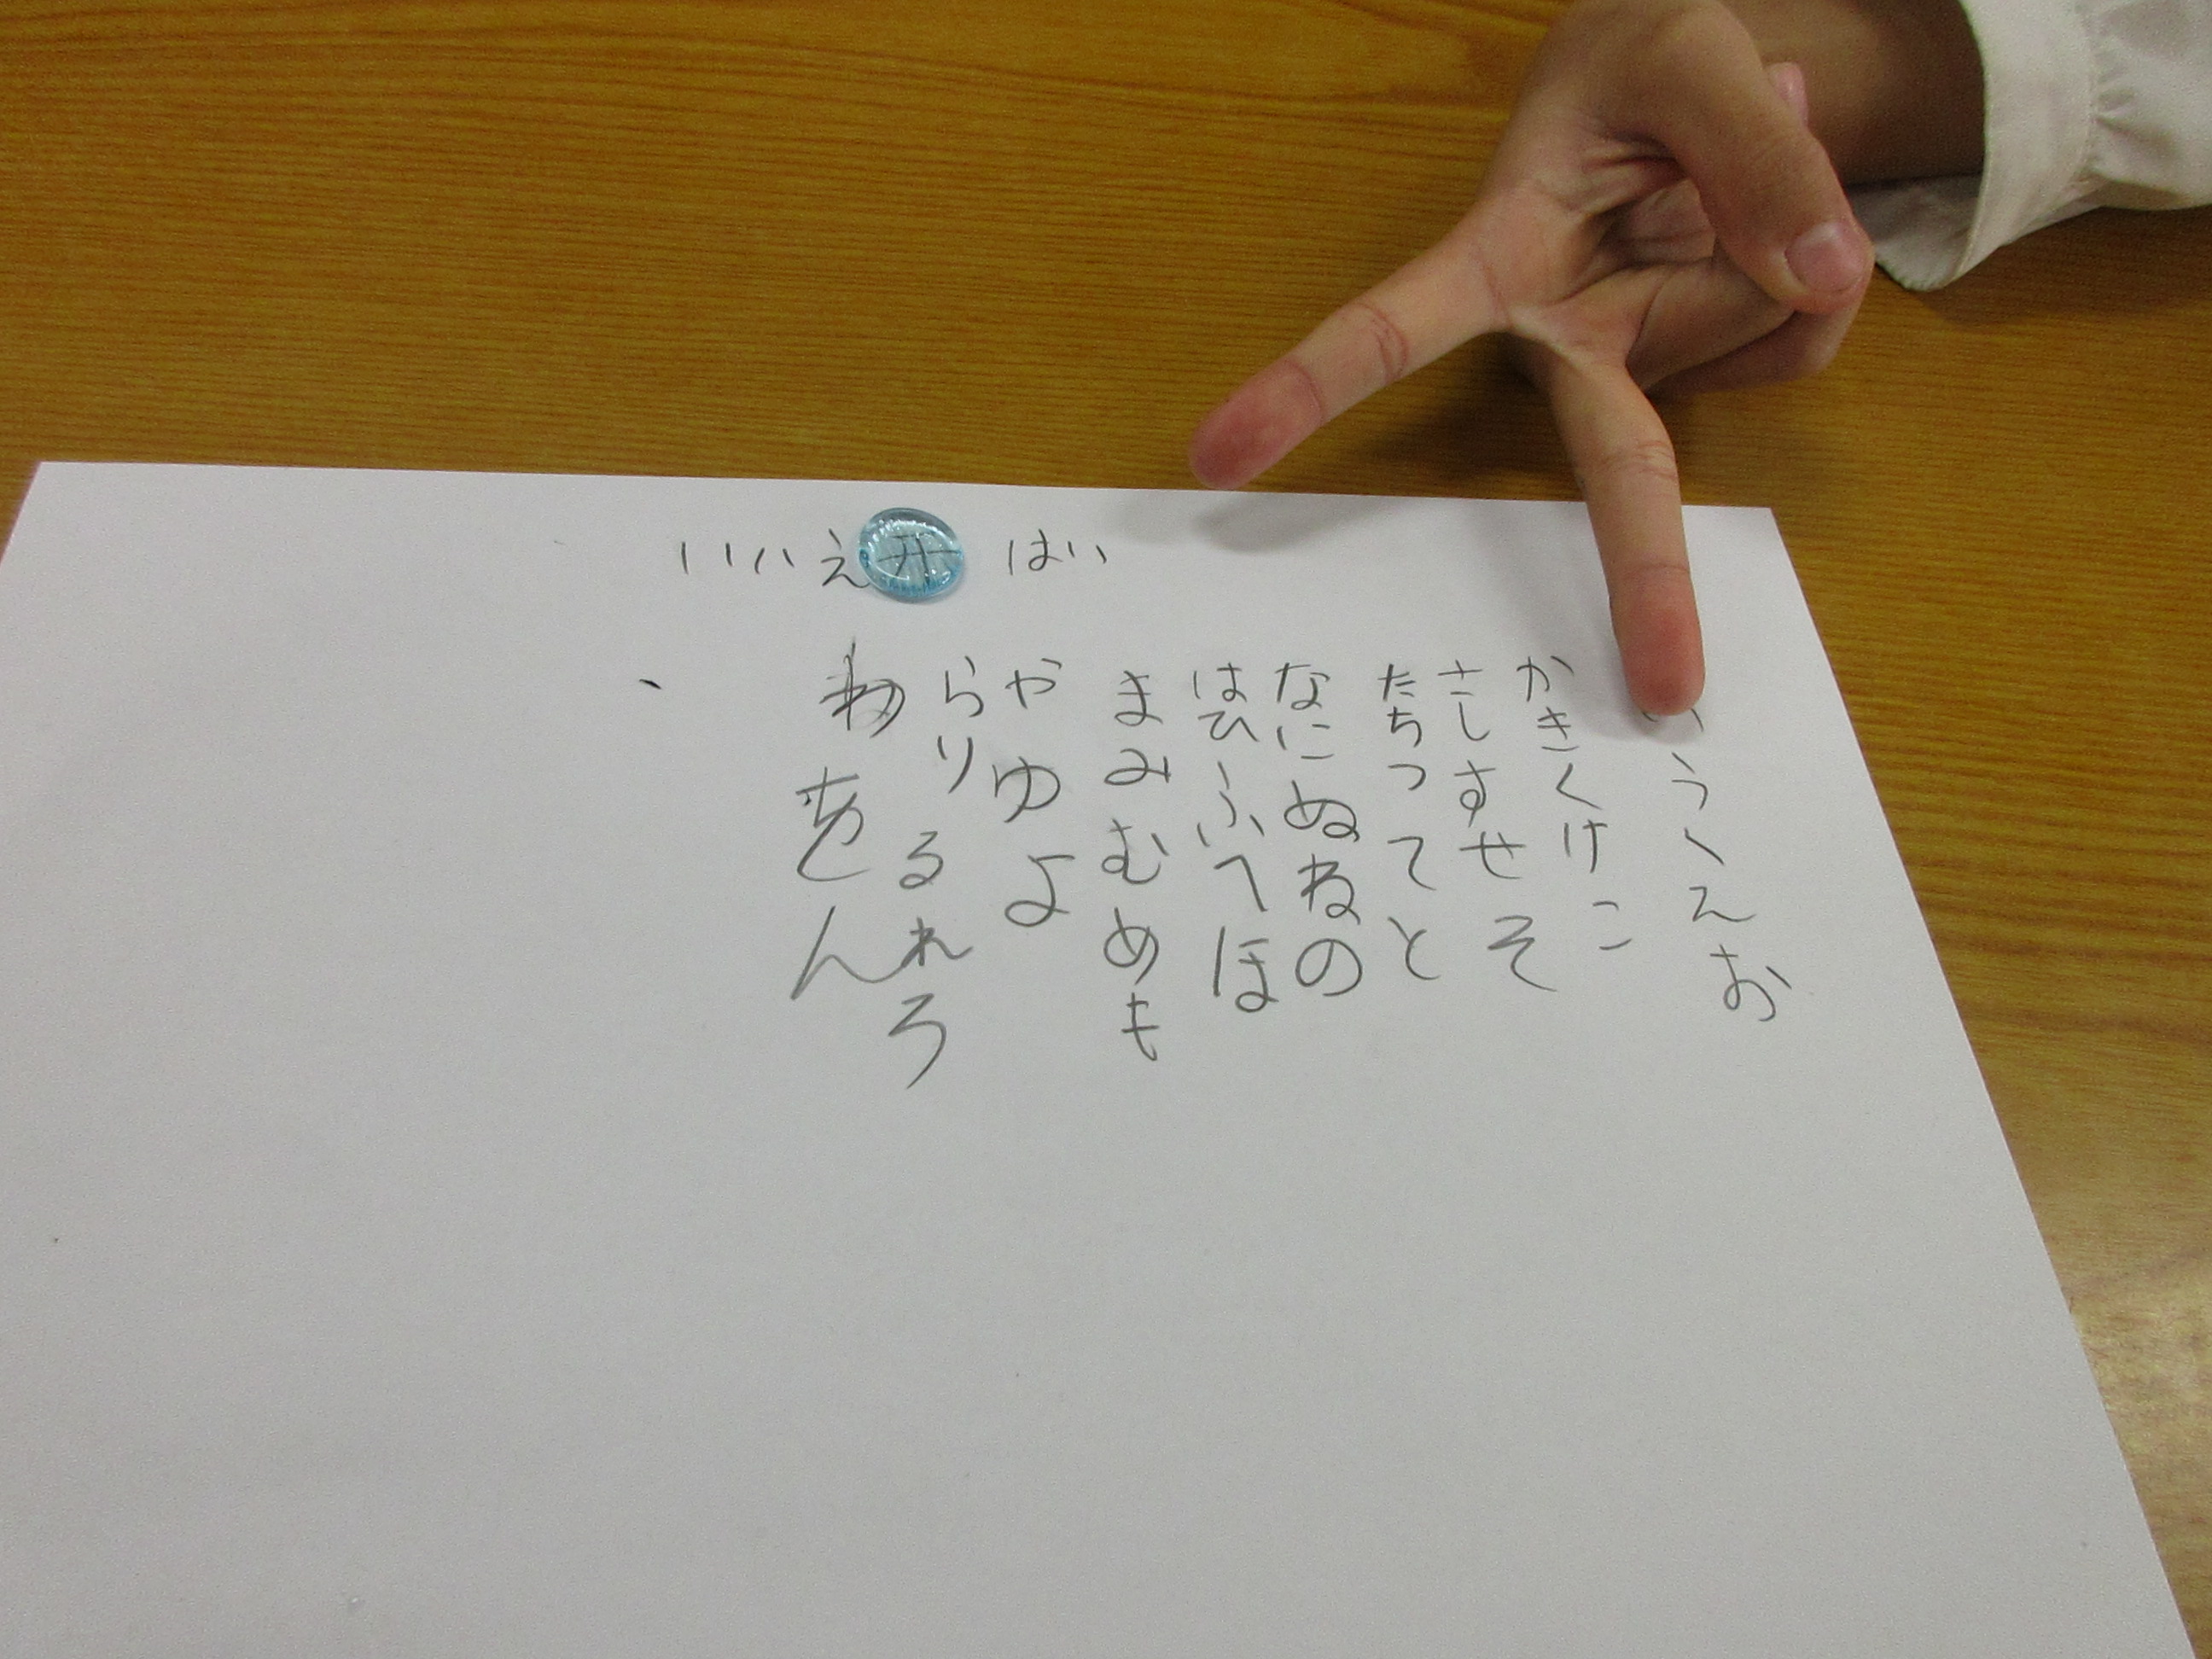 いいえ 开 はい
いうえお
かきくけこ
さしすせそ
たちつてと
なにぬねの
はひふへほ
まみむめも
やゆよ
らりるれろ
わをん